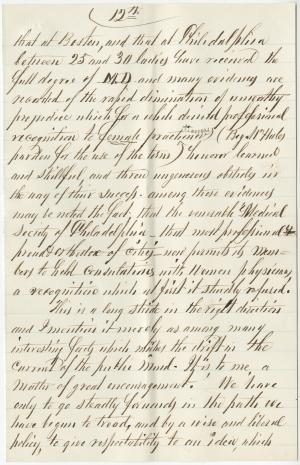 (12th)
that at Boston, and that at Philadalphia
between 25 and 30 ladies have received the
full degree of M.D. and many evidences are
recorded of the rapid elimination of unworthy
prejudice which for a while denied professional
recognition to female practicioners (Beg Dr
pardon for the use of the term) however learned
and skillful, and threw ungenerous obstacles in
the way of their success – among these evidences
may be noted the fact, that the venerable Medical
Society of Philadelphia – that most professional &
proud orthodox of cities – now permits its mem-
bers to hold Consultations with Women physicians,
a recognition which at first it sturdily refused.
This is a long stride in the right direction
and I mention it merely as among many
interesting facts which makes the drift in the
current of the public mind. It is to me, a
matter of great encouragement. We have
only to go steadily forwards in the path we
have begun to tread, and by a wise and liberal
policy, to give respectability to an idea, which